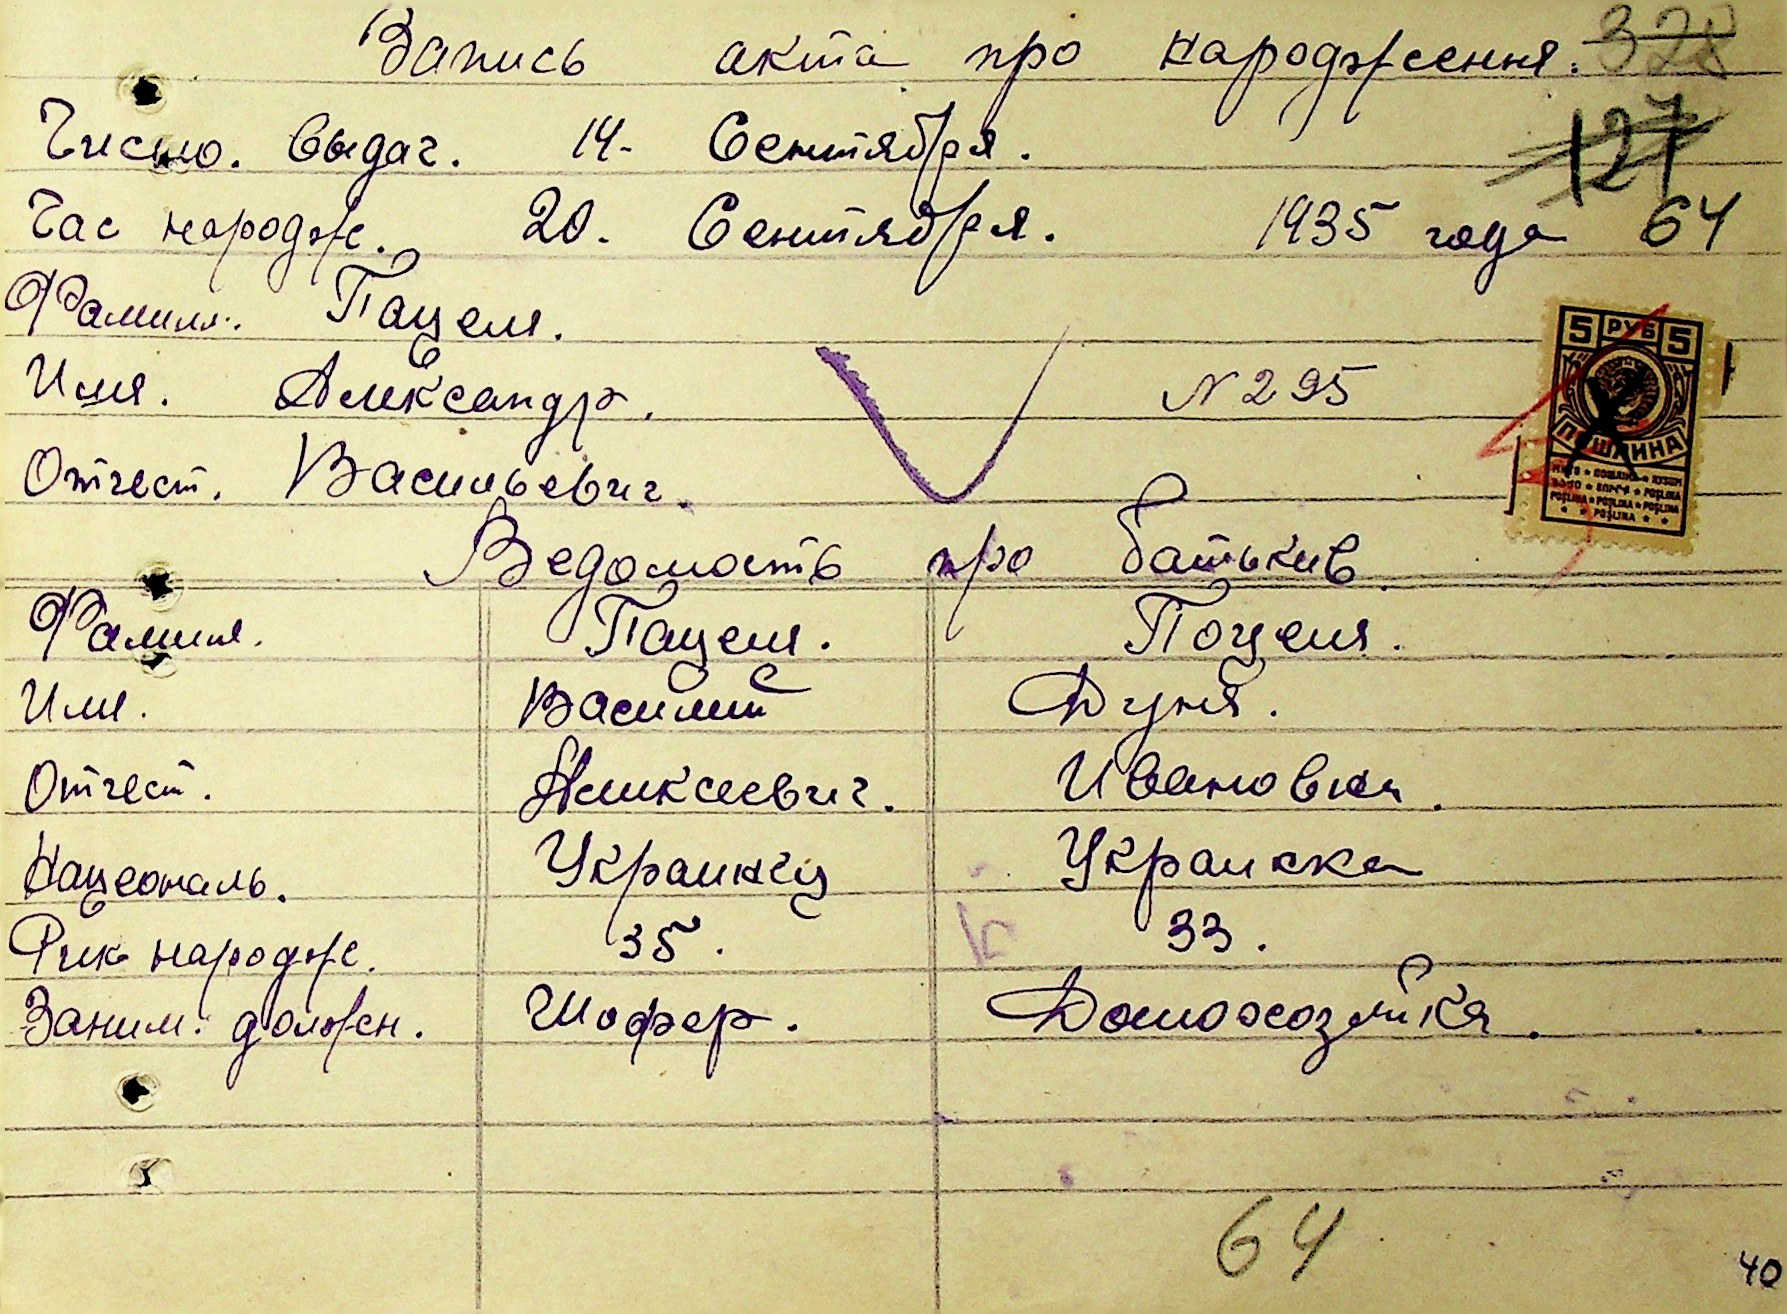 Запись акта про народження. 328
Число. выдач. 14. Сентября. 127
Час нородж. 20. Сентября. 1935 года 64
Фамиля. Пацеля.
Имя. Александр. N 295
Отчест. Васильевич.
5 РУБ 5
ПОШЛИНА
POŞLINA ★ POŞLINA ★ POŞLINA
★ ★ POŞLINA ★ ★
Ведомость про батькив
Фамиля. Пацеля. Поцеля.
Имя. Василий Дуня.
Отчест. Алексеевич. Ивановна.
Нацеональ. Украинец Украинка
Рик народж. 35. 33.
Заним. должен. Шофер. Домохозяйка.
64
40